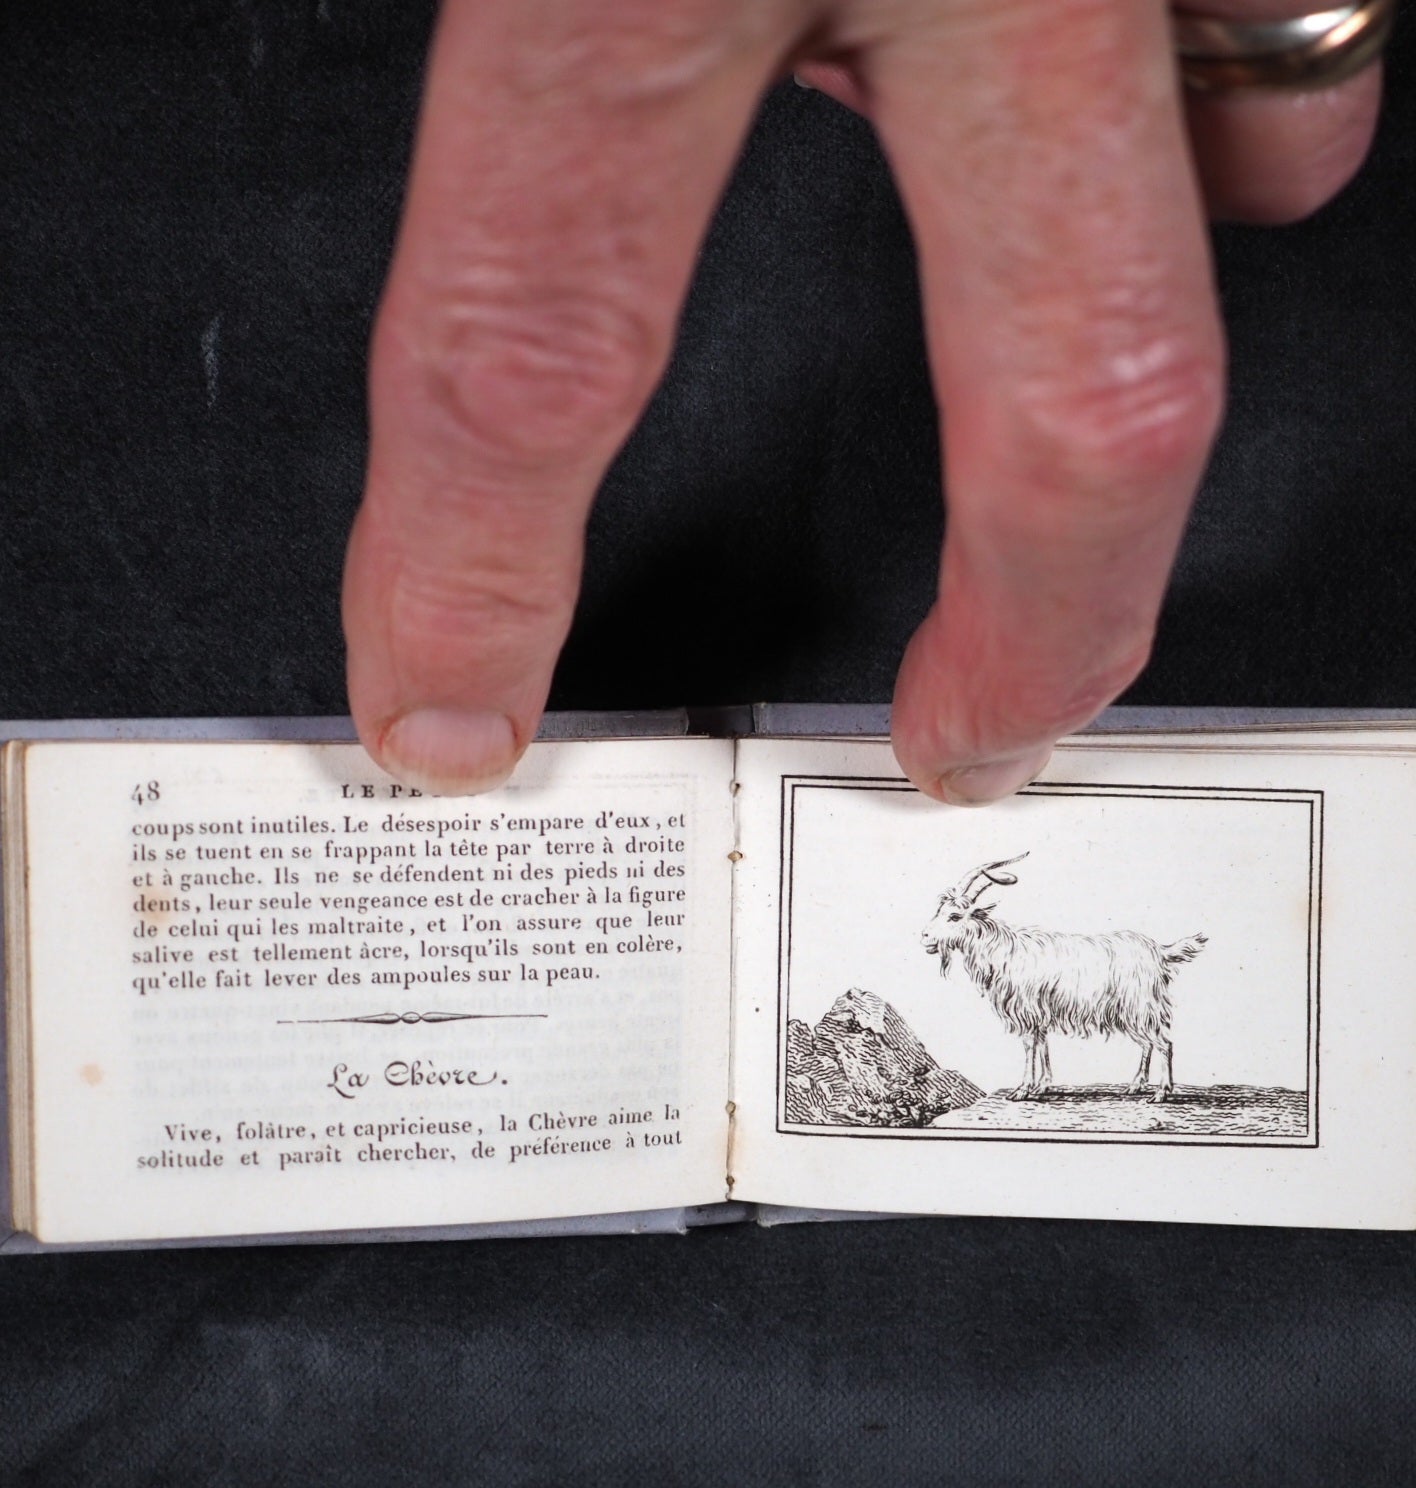 48
LE
coups sont inutiles. Le désespoir s'empare d'eux, et
ils se tuent en se frappant la tête par terre à droite
et à gauche. Ils ne se défendent ni des pieds ni des
dents, leur seule vengeance est de cracher à la figure
de celui qui les maltraite, et l'on assure que leur
salive est tellement âcre, lorsqu'ils sont en colère,
qu'elle fait lever des ampoules sur la peau.
La Chèvre.
Vive, folâtre, et capricieuse, la Chèvre aime la
solitude et paraît chercher, de préférence à tout